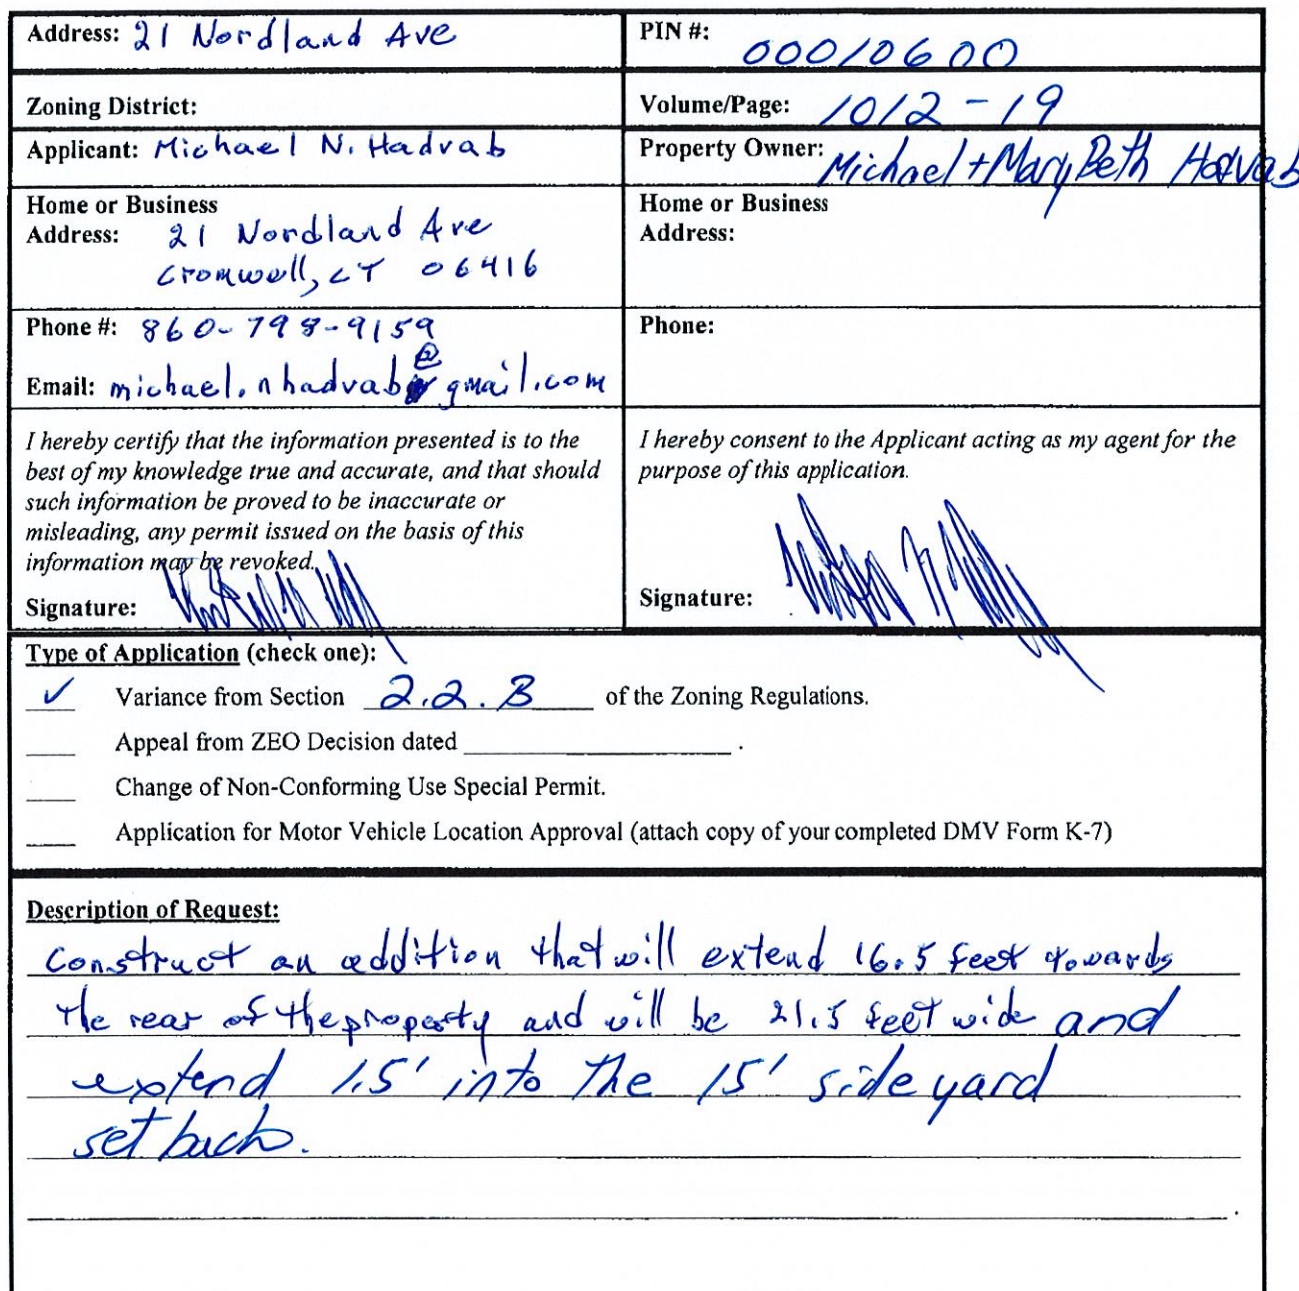 Address: 21 Nordland Ave
PIN #: 00010600
Zoning District:
Volume/Page: 1012-19
Applicant: Michael N. Hadvab
Property Owner: Michael + Mary Beth Hadvab
Home or Business
Address: 21 Nordland Ave
Cromwell, CT 06416
Home or Business
Address:
Phone #: 860-798-9159
Email: michael.nhadvab@gmail.com
Phone:
I hereby certify that the information presented is to the
best of my knowledge true and accurate, and that should
such information be proved to be inaccurate or
misleading, any permit issued on the basis of this
information may be revoked.
Signature:
I hereby consent to the Applicant acting as my agent for the
purpose of this application.
Signature:
Type of Application (check one):
✓ Variance from Section 2.2.B of the Zoning Regulations.
Appeal from ZEO Decision dated .
Change of Non-Conforming Use Special Permit.
Application for Motor Vehicle Location Approval (attach copy of your completed DMV Form K-7)
Description of Request:
Construct an addition that will extend 16.5 feet towards
the rear of the property and will be 21.5 feet wide and
extend 1.5' into the 15' side yard
setback.